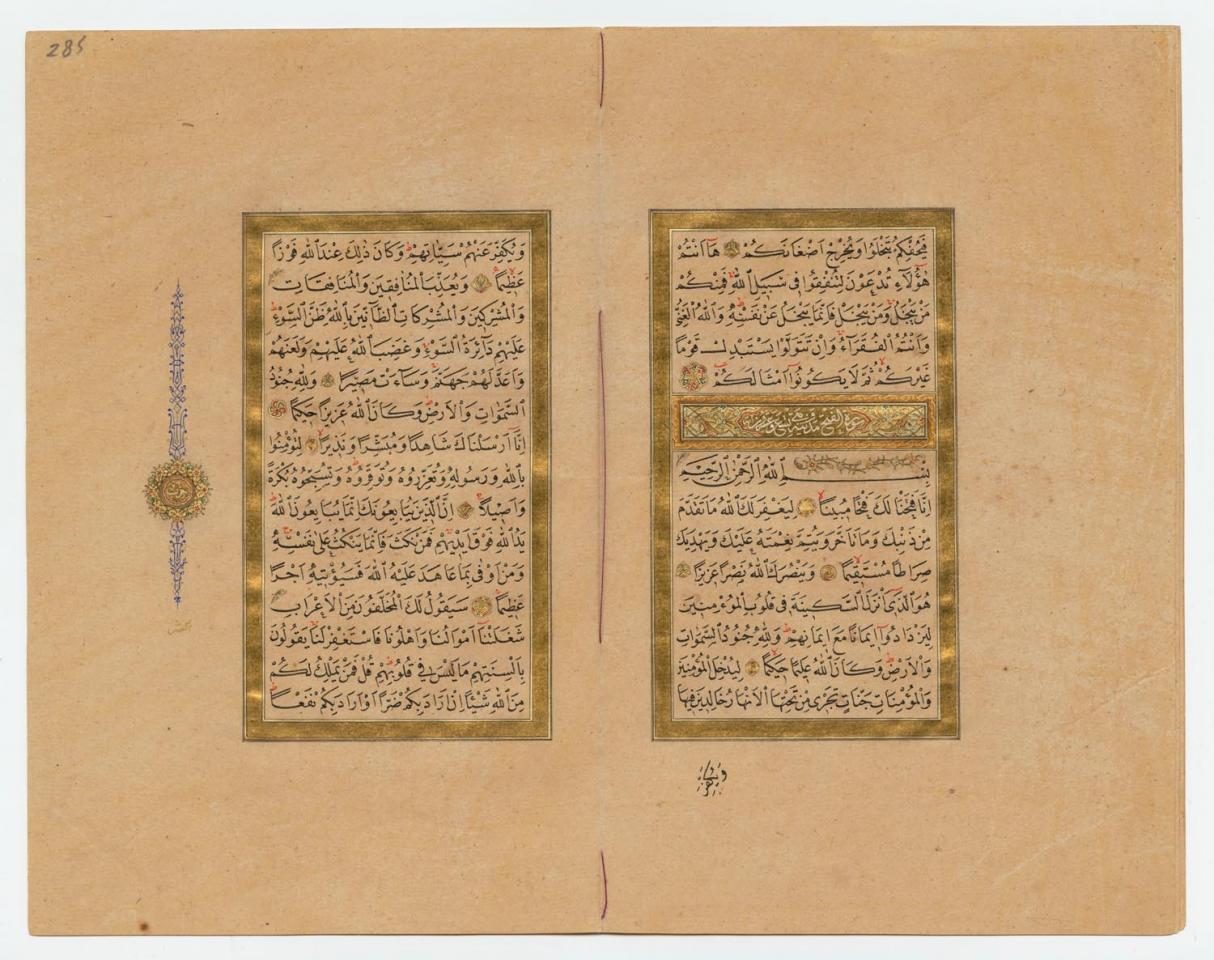 فَيُحْفِكُمْ تَبْخَلُوا وَيُخْرِجْ اَضْغَانَكُمْ هَا اَنْتُمْ
هٰٓؤُلَاءِ تُدْعَوْنَ لِتُنْفِقُوا فِى سَبِيلِ اللّٰهِ فَمِنْكُمْ
مَنْ يَبْخَلُ وَمَنْ يَبْخَلْ فَاِنَّمَا يَبْخَلُ عَنْ نَفْسِهِ وَاللّٰهُ الْغَنِىُّ
وَاَنْتُمُ الْفُقَرَاءُ وَاِنْ تَتَوَلَّوْا يَسْتَبْدِلْ قَوْمًا
غَيْرَكُمْ ثُمَّ لَا يَكُونُوا اَمْثَالَكُمْ
بِسْمِ اللّٰهِ الرَّحْمٰنِ الرَّحِيمِ
اِنَّا فَتَحْنَا لَكَ فَتْحًا مُبِينًا لِيَغْفِرَ لَكَ اللّٰهُ مَا تَقَدَّمَ
مِنْ ذَنْبِكَ وَمَا تَاَخَّرَ وَيُتِمَّ نِعْمَتَهُ عَلَيْكَ وَيَهْدِيَكَ
صِرَاطًا مُسْتَقِيمًا وَيَنْصُرَكَ اللّٰهُ نَصْرًا عَزِيزًا
هُوَ الَّذِى اَنْزَلَ السَّكِينَةَ فِى قُلُوبِ الْمُؤْمِنِينَ
لِيَزْدَادُوا اِيمَانًا مَعَ اِيمَانِهِمْ وَلِلّٰهِ جُنُودُ السَّمٰوَاتِ
وَالْاَرْضِ وَكَانَ اللّٰهُ عَلِيمًا حَكِيمًا لِيُدْخِلَ الْمُؤْمِنِينَ
وَالْمُؤْمِنَاتِ جَنَّاتٍ تَجْرِى مِنْ تَحْتِهَا الْاَنْهَارُ خَالِدِينَ فِيهَا
وَيُكَفِّرَ
285
وَيُكَفِّرَ عَنْهُمْ سَيِّاٰتِهِمْ وَكَانَ ذٰلِكَ عِنْدَ اللّٰهِ فَوْزًا
عَظِيمًا وَيُعَذِّبَ الْمُنَافِقِينَ وَالْمُنَافِقَاتِ
وَالْمُشْرِكِينَ وَالْمُشْرِكَاتِ الظَّانِّينَ بِاللّٰهِ ظَنَّ السَّوْءِ
عَلَيْهِمْ دَائِرَةُ السَّوْءِ وَغَضِبَ اللّٰهُ عَلَيْهِمْ وَلَعَنَهُمْ
وَاَعَدَّ لَهُمْ جَهَنَّمَ وَسَاءَتْ مَصِيرًا وَلِلّٰهِ جُنُودُ
السَّمٰوَاتِ وَالْاَرْضِ وَكَانَ اللّٰهُ عَزِيزًا حَكِيمًا
اِنَّا اَرْسَلْنَاكَ شَاهِدًا وَمُبَشِّرًا وَنَذِيرًا لِتُؤْمِنُوا
بِاللّٰهِ وَرَسُولِهِ وَتُعَزِّرُوهُ وَتُوَقِّرُوهُ وَتُسَبِّحُوهُ بُكْرَةً
وَاَصِيلًا اِنَّ الَّذِينَ يُبَايِعُونَكَ اِنَّمَا يُبَايِعُونَ اللّٰهَ
يَدُ اللّٰهِ فَوْقَ اَيْدِيهِمْ فَمَنْ نَكَثَ فَاِنَّمَا يَنْكُثُ عَلٰى نَفْسِهِ
وَمَنْ اَوْفٰى بِمَا عَاهَدَ عَلَيْهُ اللّٰهَ فَسَيُؤْتِيهِ اَجْرًا
عَظِيمًا سَيَقُولُ لَكَ الْمُخَلَّفُونَ مِنَ الْاَعْرَابِ
شَغَلَتْنَا اَمْوَالُنَا وَاَهْلُونَا فَاسْتَغْفِرْ لَنَا يَقُولُونَ
بِاَلْسِنَتِهِمْ مَا لَيْسَ فِى قُلُوبِهِمْ قُلْ فَمَنْ يَمْلِكُ لَكُمْ
مِنَ اللّٰهِ شَيْئًا اِنْ اَرَادَ بِكُمْ ضَرًّا اَوْ اَرَادَ بِكُمْ نَفْعًا